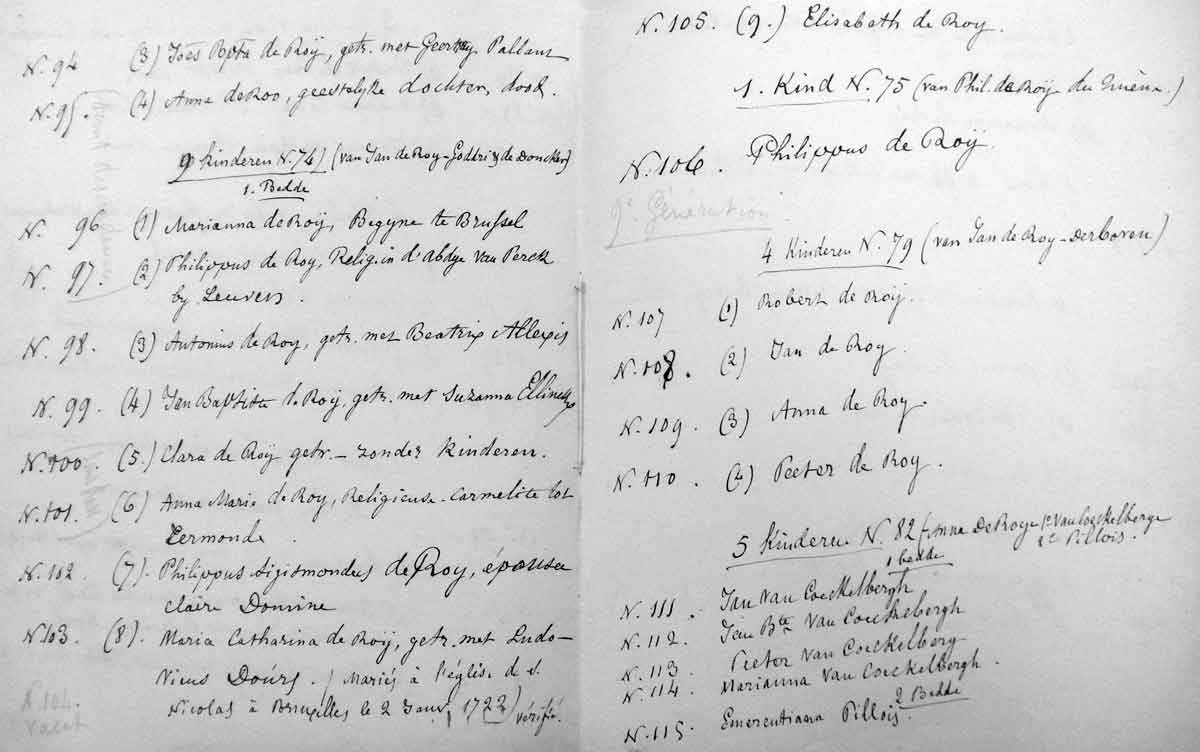 N. 94 (3) Joës Bpta de Roÿ, getr. met Geertry Pallant
N. 95. (4) Anna de Roo, geestelyke dochter, dood.
9 kinderen N. 74 (van Jan de Roy-Goddri & de Doncker)
1. Bedde
N. 96 (1) Marianna de Roÿ, Begyne te Brussel
N. 97. (2) Philippus de Roy, Relig. in d'abdye van Perck
by Leuven.
N. 98. (3) Antonius de Roy, getr. met Beatrix Allexis
N. 99. (4) Jan Baptiste de Roy, getr. met Suzanna
N. 100. (5.) Clara de Roÿ getr. - zonder kinderen.
N. 101. (6) Anna Marie de Roy, Religieuse-Carmelite tot
Termonde.
N. 102. (7). Philippus Sigismondus de Roy, épousa
Claire Domine
N. 103. (8). Maria Catharina de Roÿ, getr. met Ludo-
vicus Doúrs. / Mariés à l'église de S.
Nicolas à Bruxelles le 2 Janv. 1722) vérifié.
N. 104.
vacat
N. 105. (9.) Elisabeth de Roy.
1. Kind N. 75 (van Phil. de Roÿ du )
N. 106. Philippus de Roÿ.
9e Génération
4 Kinderen N. 79 (van Jan de Roy-Derboven)
N. 107 (1) Robert de Roÿ.
N. 108. (2) Jan de Roy.
N. 109. (3) Anna de Roy.
N. 110. (4) Peeter de Roy.
5 Kinderen N. 82 (Anne De Roye 1e Van Coeckelberge
2e Pillois.
1 bedde
N. 111. Jan Van Coeckelbergh
N. 112. Jean Bte Van Coeckebergh
N. 113 Peeter Van Coeckelberg
N. 114. Marianna Van Coeckelbergh.
2 Bedde
N. 115. Emerentiana Pillois.